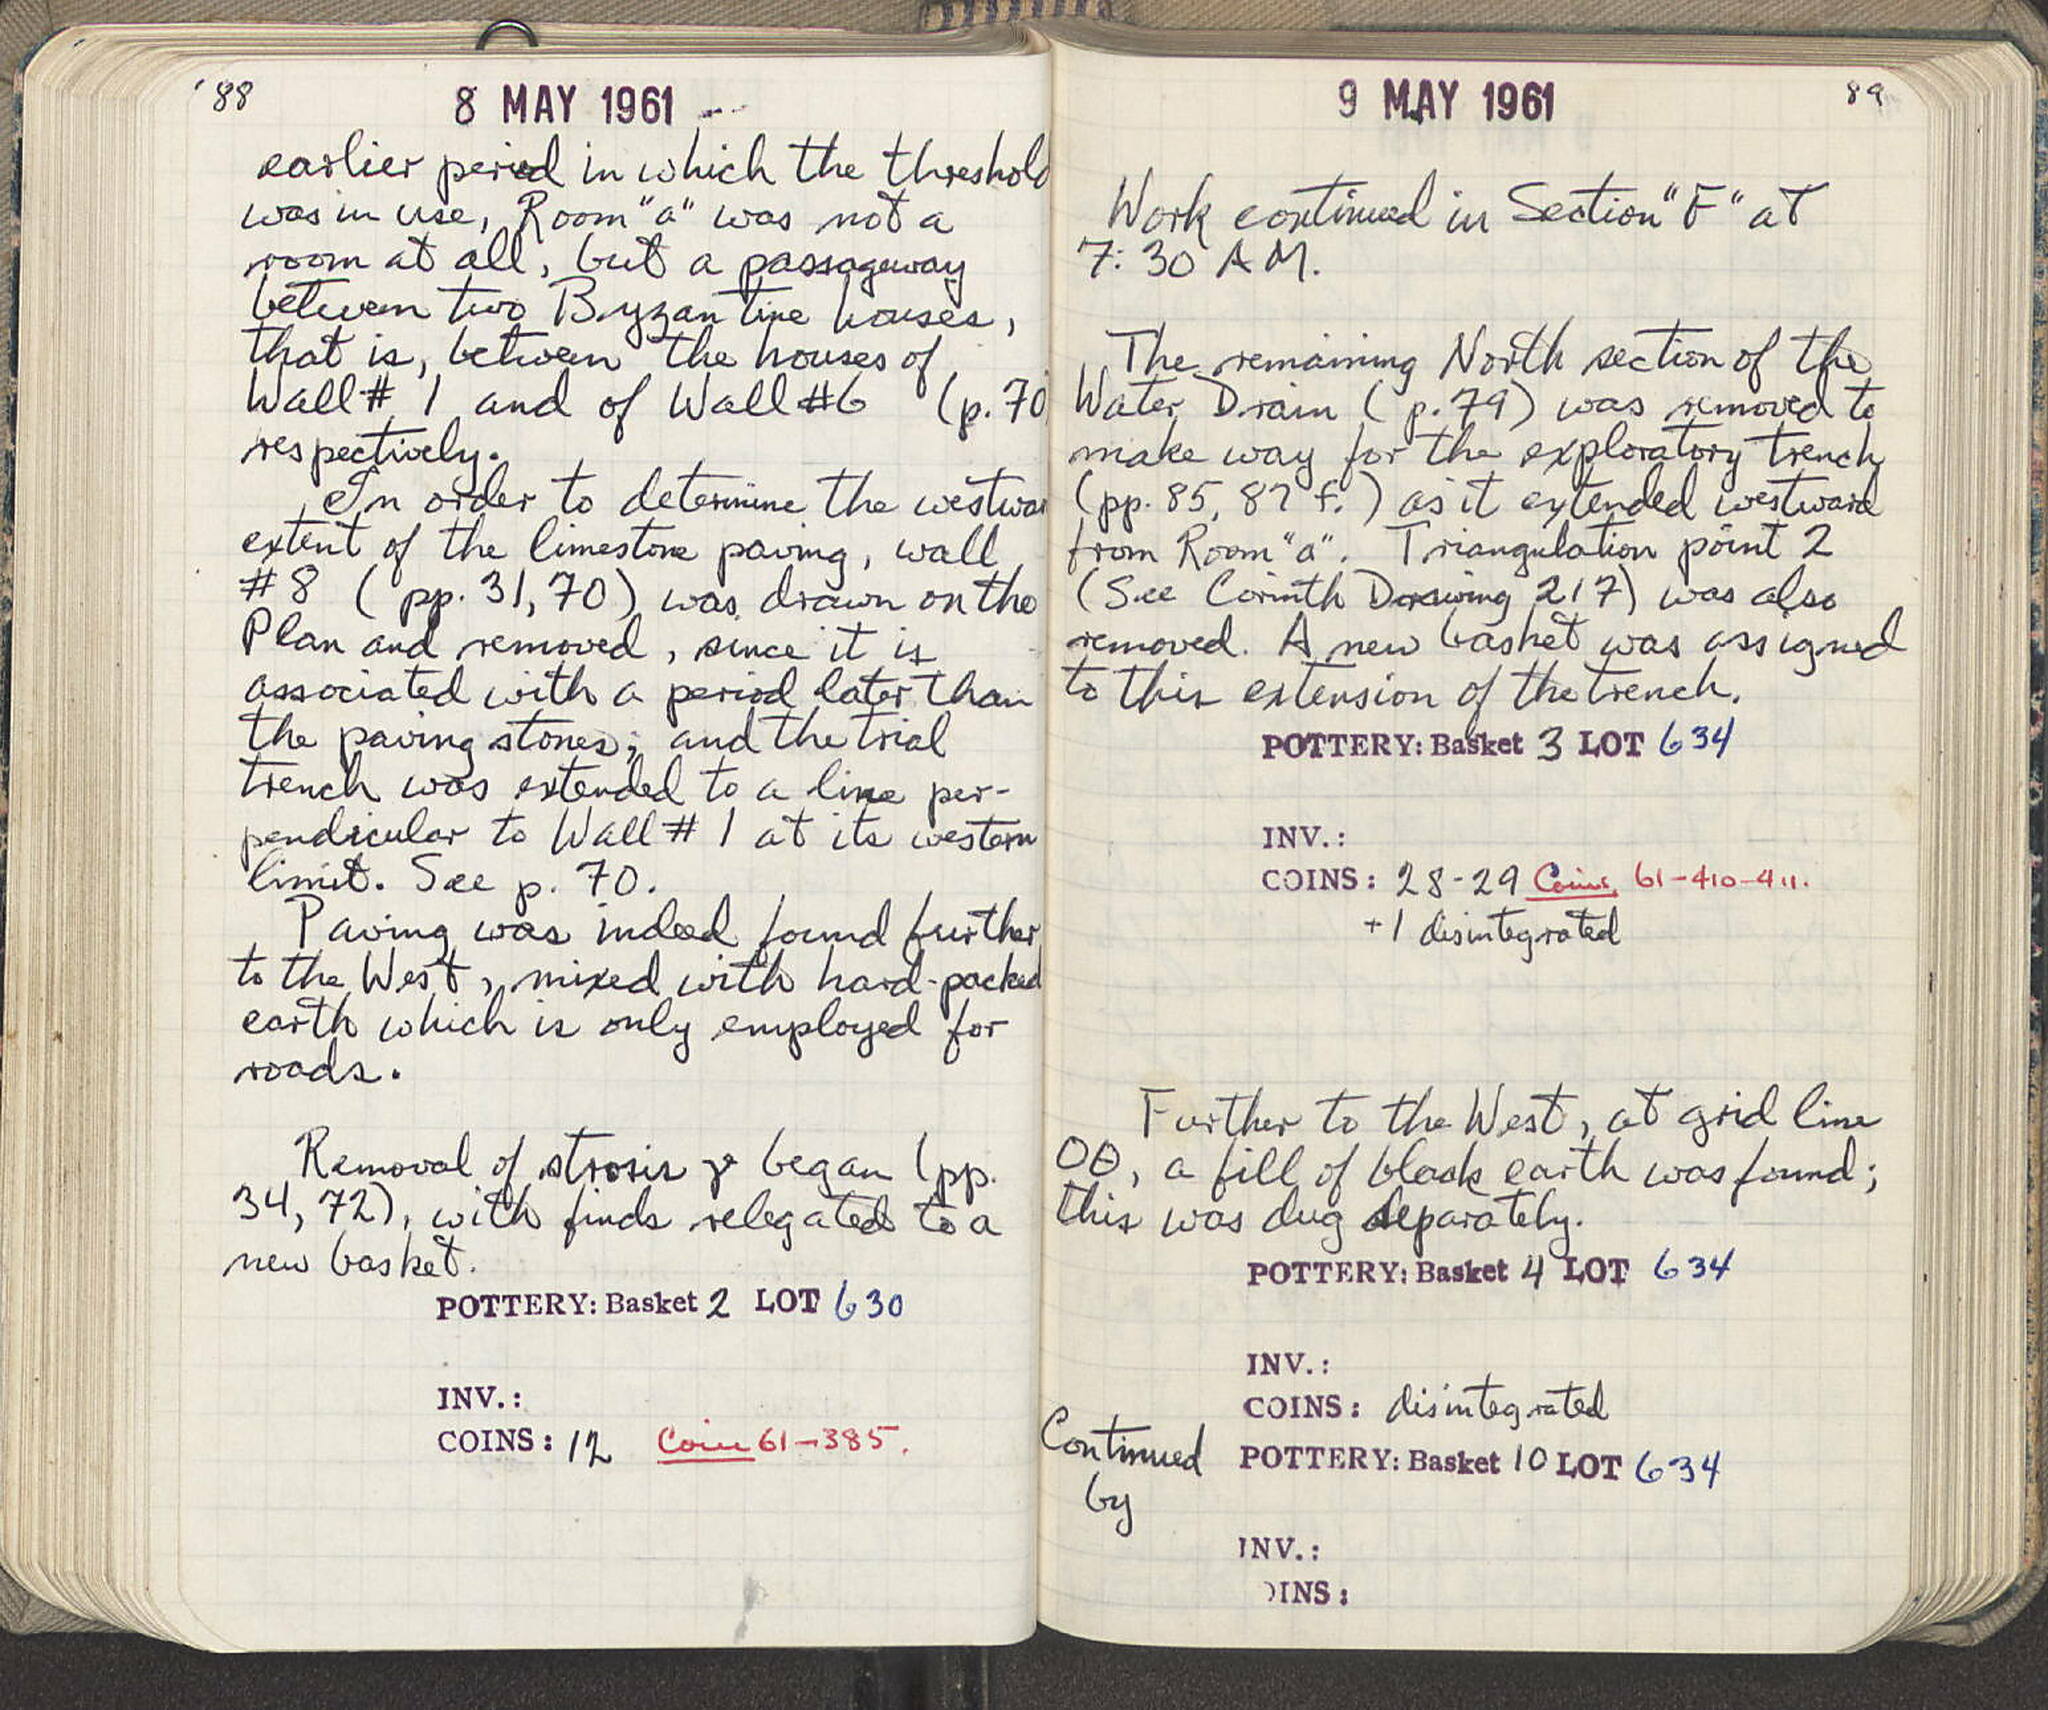 88
8 MAY 1961
earlier period in which the threshold
was in use, Room "a" was not a
room at all, but a passageway
between two Byzantine houses,
that is, between the houses of
Wall # 1 and of Wall #6 (p. 70
respectively.
In order to determine the westwar
extent of the limestone paving, wall
#8 (pp. 31, 70) was drawn on the
Plan and removed, since it is
associated with a period later than
the paving stones; and the trial
trench was extended to a line per-
pendicular to Wall # 1 at its western
limit. See p. 70.
Paving was indeed found further
to the West, mixed with hard-packed
earth which is only employed for
roads.
Removal of strosis γ began (pp.
34, 72), with finds relegated to a
new basket.
POTTERY: Basket 2 LOT 630
INV.:
COINS: 12 Coin 61-385.
9 MAY 1961
89
Work continued in Section "F" at
7:30 AM.
The remaining North section of the
Water Drain (p. 79) was removed to
make way for the exploratory trench
(pp. 85, 87 f.) as it extended westward
from Room "a". Triangulation point 2
(See Corinth Drawing 217) was also
removed. A new basket was assigned
to this extension of the trench.
POTTERY: Basket 3 LOT 634
INV.:
COINS: 28-29 Coins 61-410-411.
+1 disintegrated
Further to the West, at grid line
OΘ, a fill of black earth was found;
this was dug separately.
POTTERY: Basket 4 LOT 634
INV.:
COINS: disintegrated
Continued POTTERY: Basket 10 LOT 634
by
INV.:
OINS: